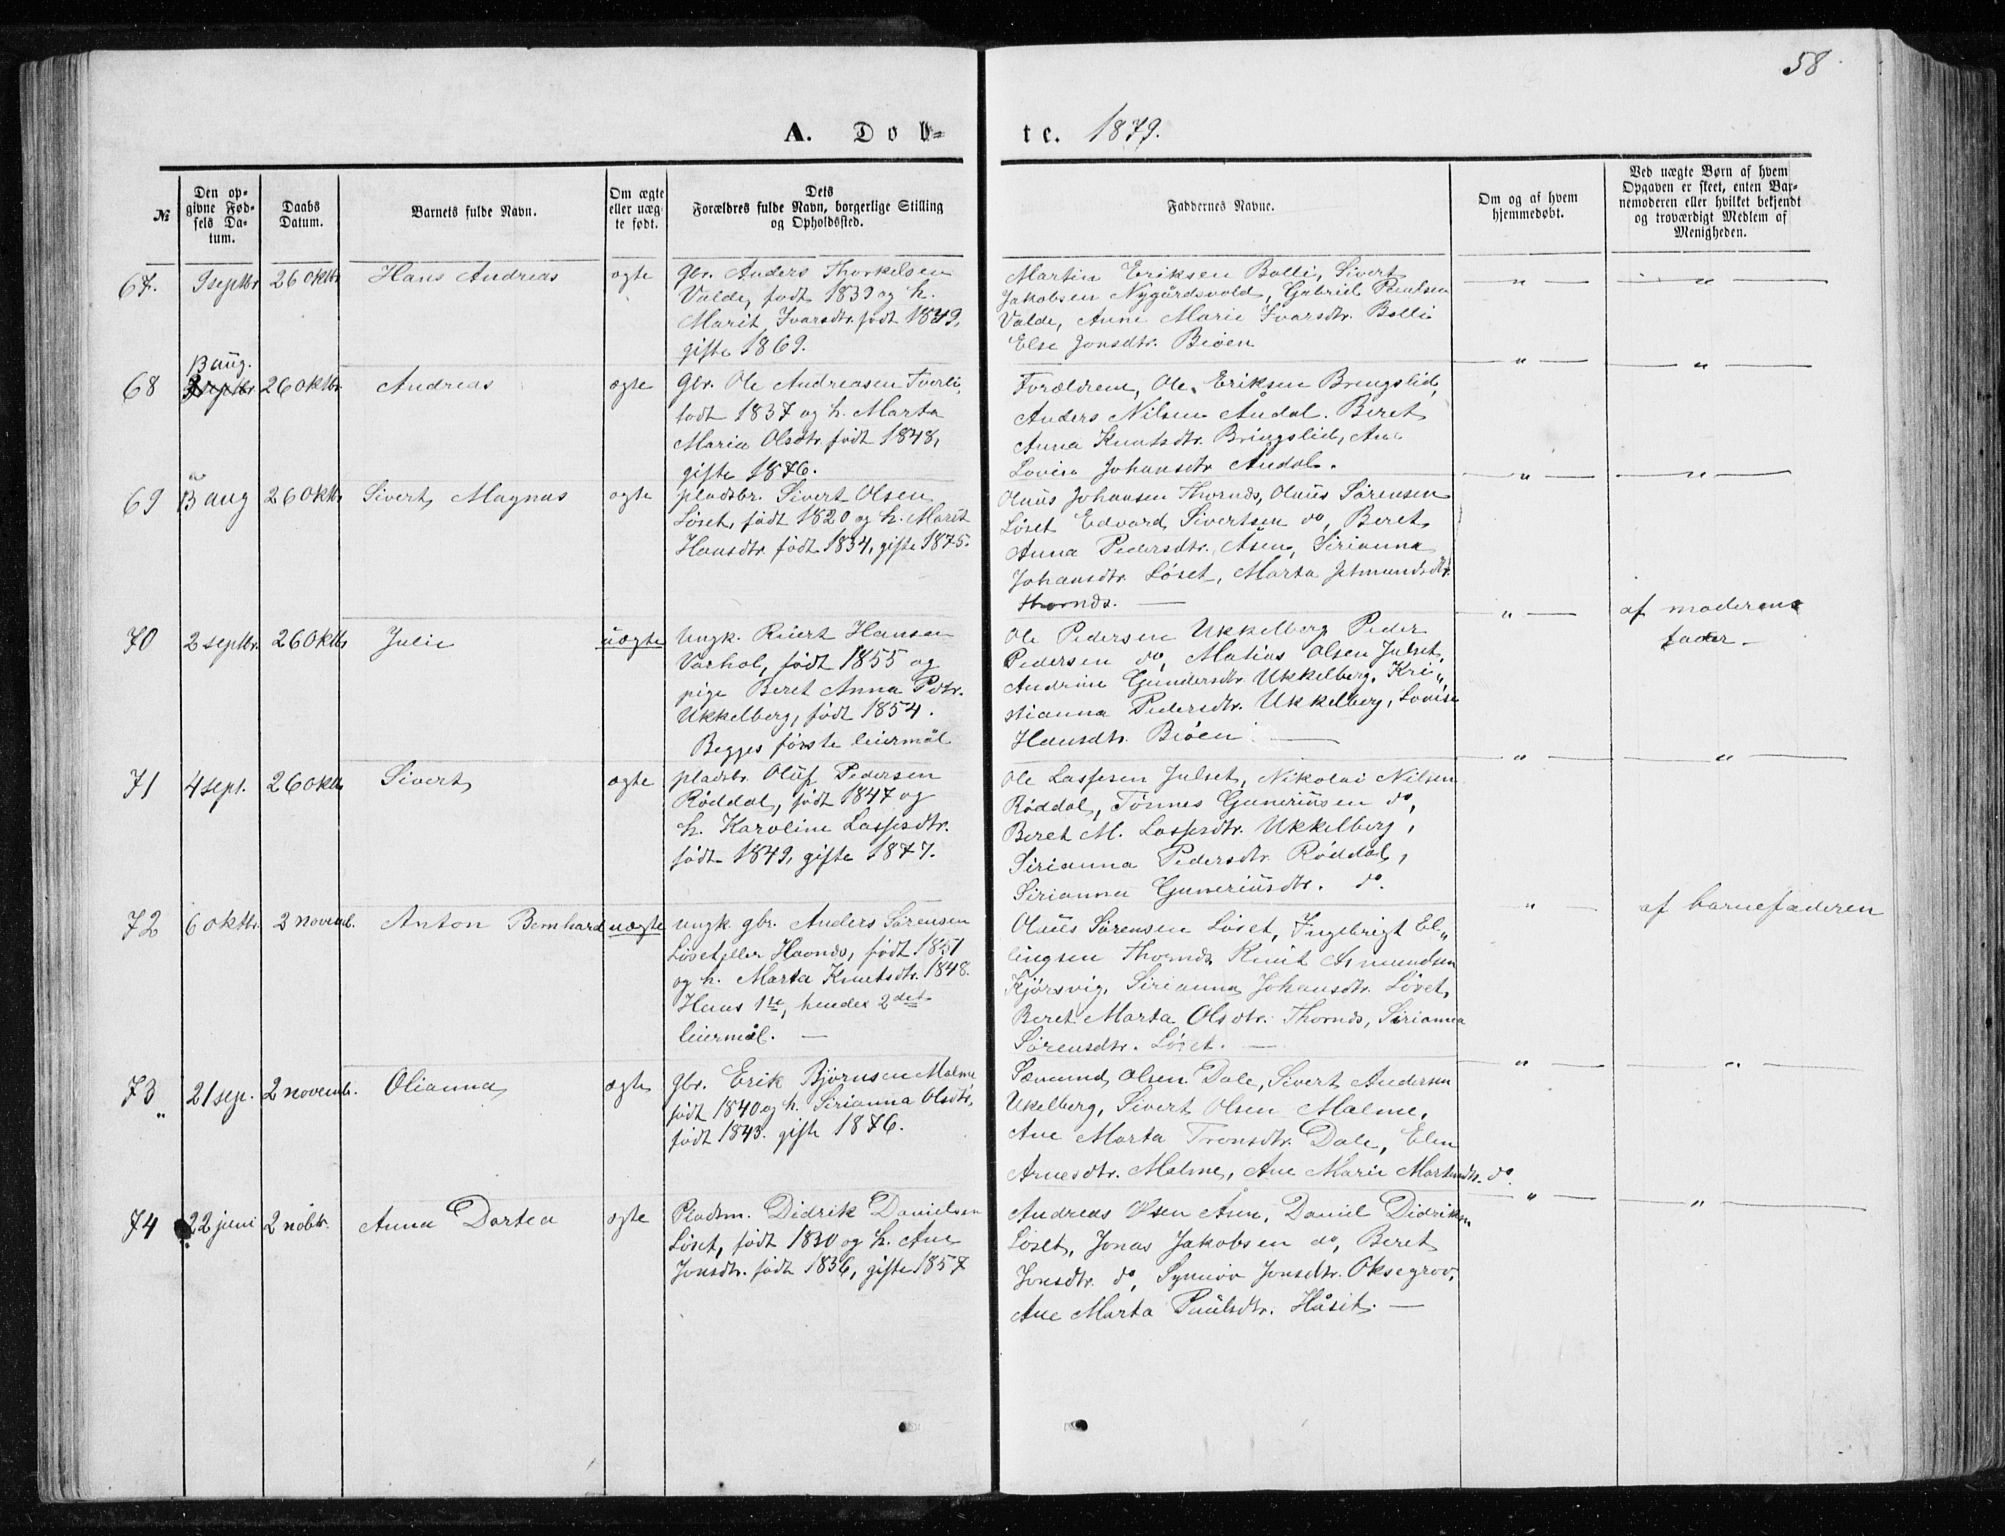 58.
A. Døb-
te. 1879.
№
Den op-
givne Fød-
sels Da-
tum.
Daabs
Datum.
Barnets fulde Navn.
Om ægte
eller uæg-
te født.
Dets
Forældres fulde Navn, borgerlige Stilling
og Opholdssted.
Faddernes Navne.
Om og af hvem
hjemmedøbt.
Ved uægte Børn af hvem
Opgaven er skeet, enten Bar-
nemoderen eller hvilket bekjendt
og troværdigt Medlem af
Menigheden.
67. 9 septbr. 26 oktbr. Hans Andreas ægte
gbr. Anders Thorkelsen
Valde, født 1839 og h.
Marit Ivarsdtr. født 1849,
gifte 1869.
Martin Eriksen Bolli, Sivert
Jakobsen Nygårdsvold, Gabriel Paulsen
Valde, Anne Marie Ivarsdtr. Bolli
Else Jonsdtr. Biøen
" " 
13 aug.
68 26 oktbr. Andreas ægte
gbr. Ole Andreasen Tverli,
født 1837 og h. Marta
Maria Olsdtr. født 1848,
gifte 1876.
Forældrene, Ole Eriksen Bringslid,
Anders Nilsen Åndal. Beret
Anna Knutsdtr. Bringslid, Ane
Lovise Johansdtr Åndal.
" "
69 13 aug 26 oktbr Sivert Magnus ægte
pladsbr. Sivert Olsen
Løset, født 1820 og h. Marit
Hansdtr. født 1834, gifte 1875.
Olaus Johansen Thornds, Olaus Sørensen
Løset Edvard Sivertsen do, Beret
Anna Pedersdtr. Åsen, Sirianna
Johansdtr. Løset, Marta Jetmundsdtr.
Thornds. —
" "
70 2 septbr. 26 oktbr Julie uægte
ungk. Riert Hansen
Varhol, født 1855 og
pige Beret Anna Pdtr.
Ukkelberg, født 1854.
Begges første leiermål
Ole Pedersen Ukkelberg Peder
Pedersen do, Matias Olsen Julset,
Andrine Gundersdtr. Ukkelberg, Kri„
stianna Pedersdtr. Ukkelberg, Lovise
Hansdtr. Biøen —
" af moderens
fader —
71 4 sept. 26 oktbr Sivert ægte
pladsbr. Oluf Pedersen
Røddal, født 1847 og
h. Karoline Lassesdtr.
født 1849, gifte 1877.
Ole Lassesen Julset, Nikolai Nilsen
Røddal, Tønnes Guneriussen do,
Beret M. Lassesdtr. Ukkelberg,
Sirianna Pedersdtr. Røddal,
Sirianna Guneriusdtr. do.
" "
72 6 oktbr. 2 novemb. Anton Bernhard uægte
ungk. gbr. Anders Sørensen
Løset eller Havnds, født 1851
og h. Marta Knutsdtr. 1848.
Hans 1te, hendes 2det
leiermål. —
Olaus Sørensen Løset, Ingebrigt El„
lingsen Thornds Knut Amundsen
Kjørsvig, Sirianna Johansdtr. Løset,
Beret Marta Olsdtr. Thornds, Sirianna
Sørensdtr. Løset. —
" af barnefaderen
73 21 sep. 2 novemb. Olianna ægte
"
gbr. Erik Bjørnsen Malme
født 1840 og h. Sirianna Olsdtr,
født 1843. gifte 1876.
Sæmund Olsen Dale, Sivert Andersen
Ukelberg, Sivert Olsen Malme,
Ane Marta Tronsdtr. Dale, Elen
Arnesdtr. Malme, Ane Marie dtr. do.
" "
74 22 juni 2 nobtr. Anna Dortea ægte
Pladsm. Didrik Danielsen
Løset, født 1830 og h. Ane
Jonsdtr. født 1836, gifte 1857
Andreas Olsen Åsen, Daniel Didriksen
Løset, Jonas Jakobsen do, Beret
Jonsdtr. do, Synnøv Jonsdtr. Oksegrov,
Ane Marta Paulsdtr. Håset. —
" "